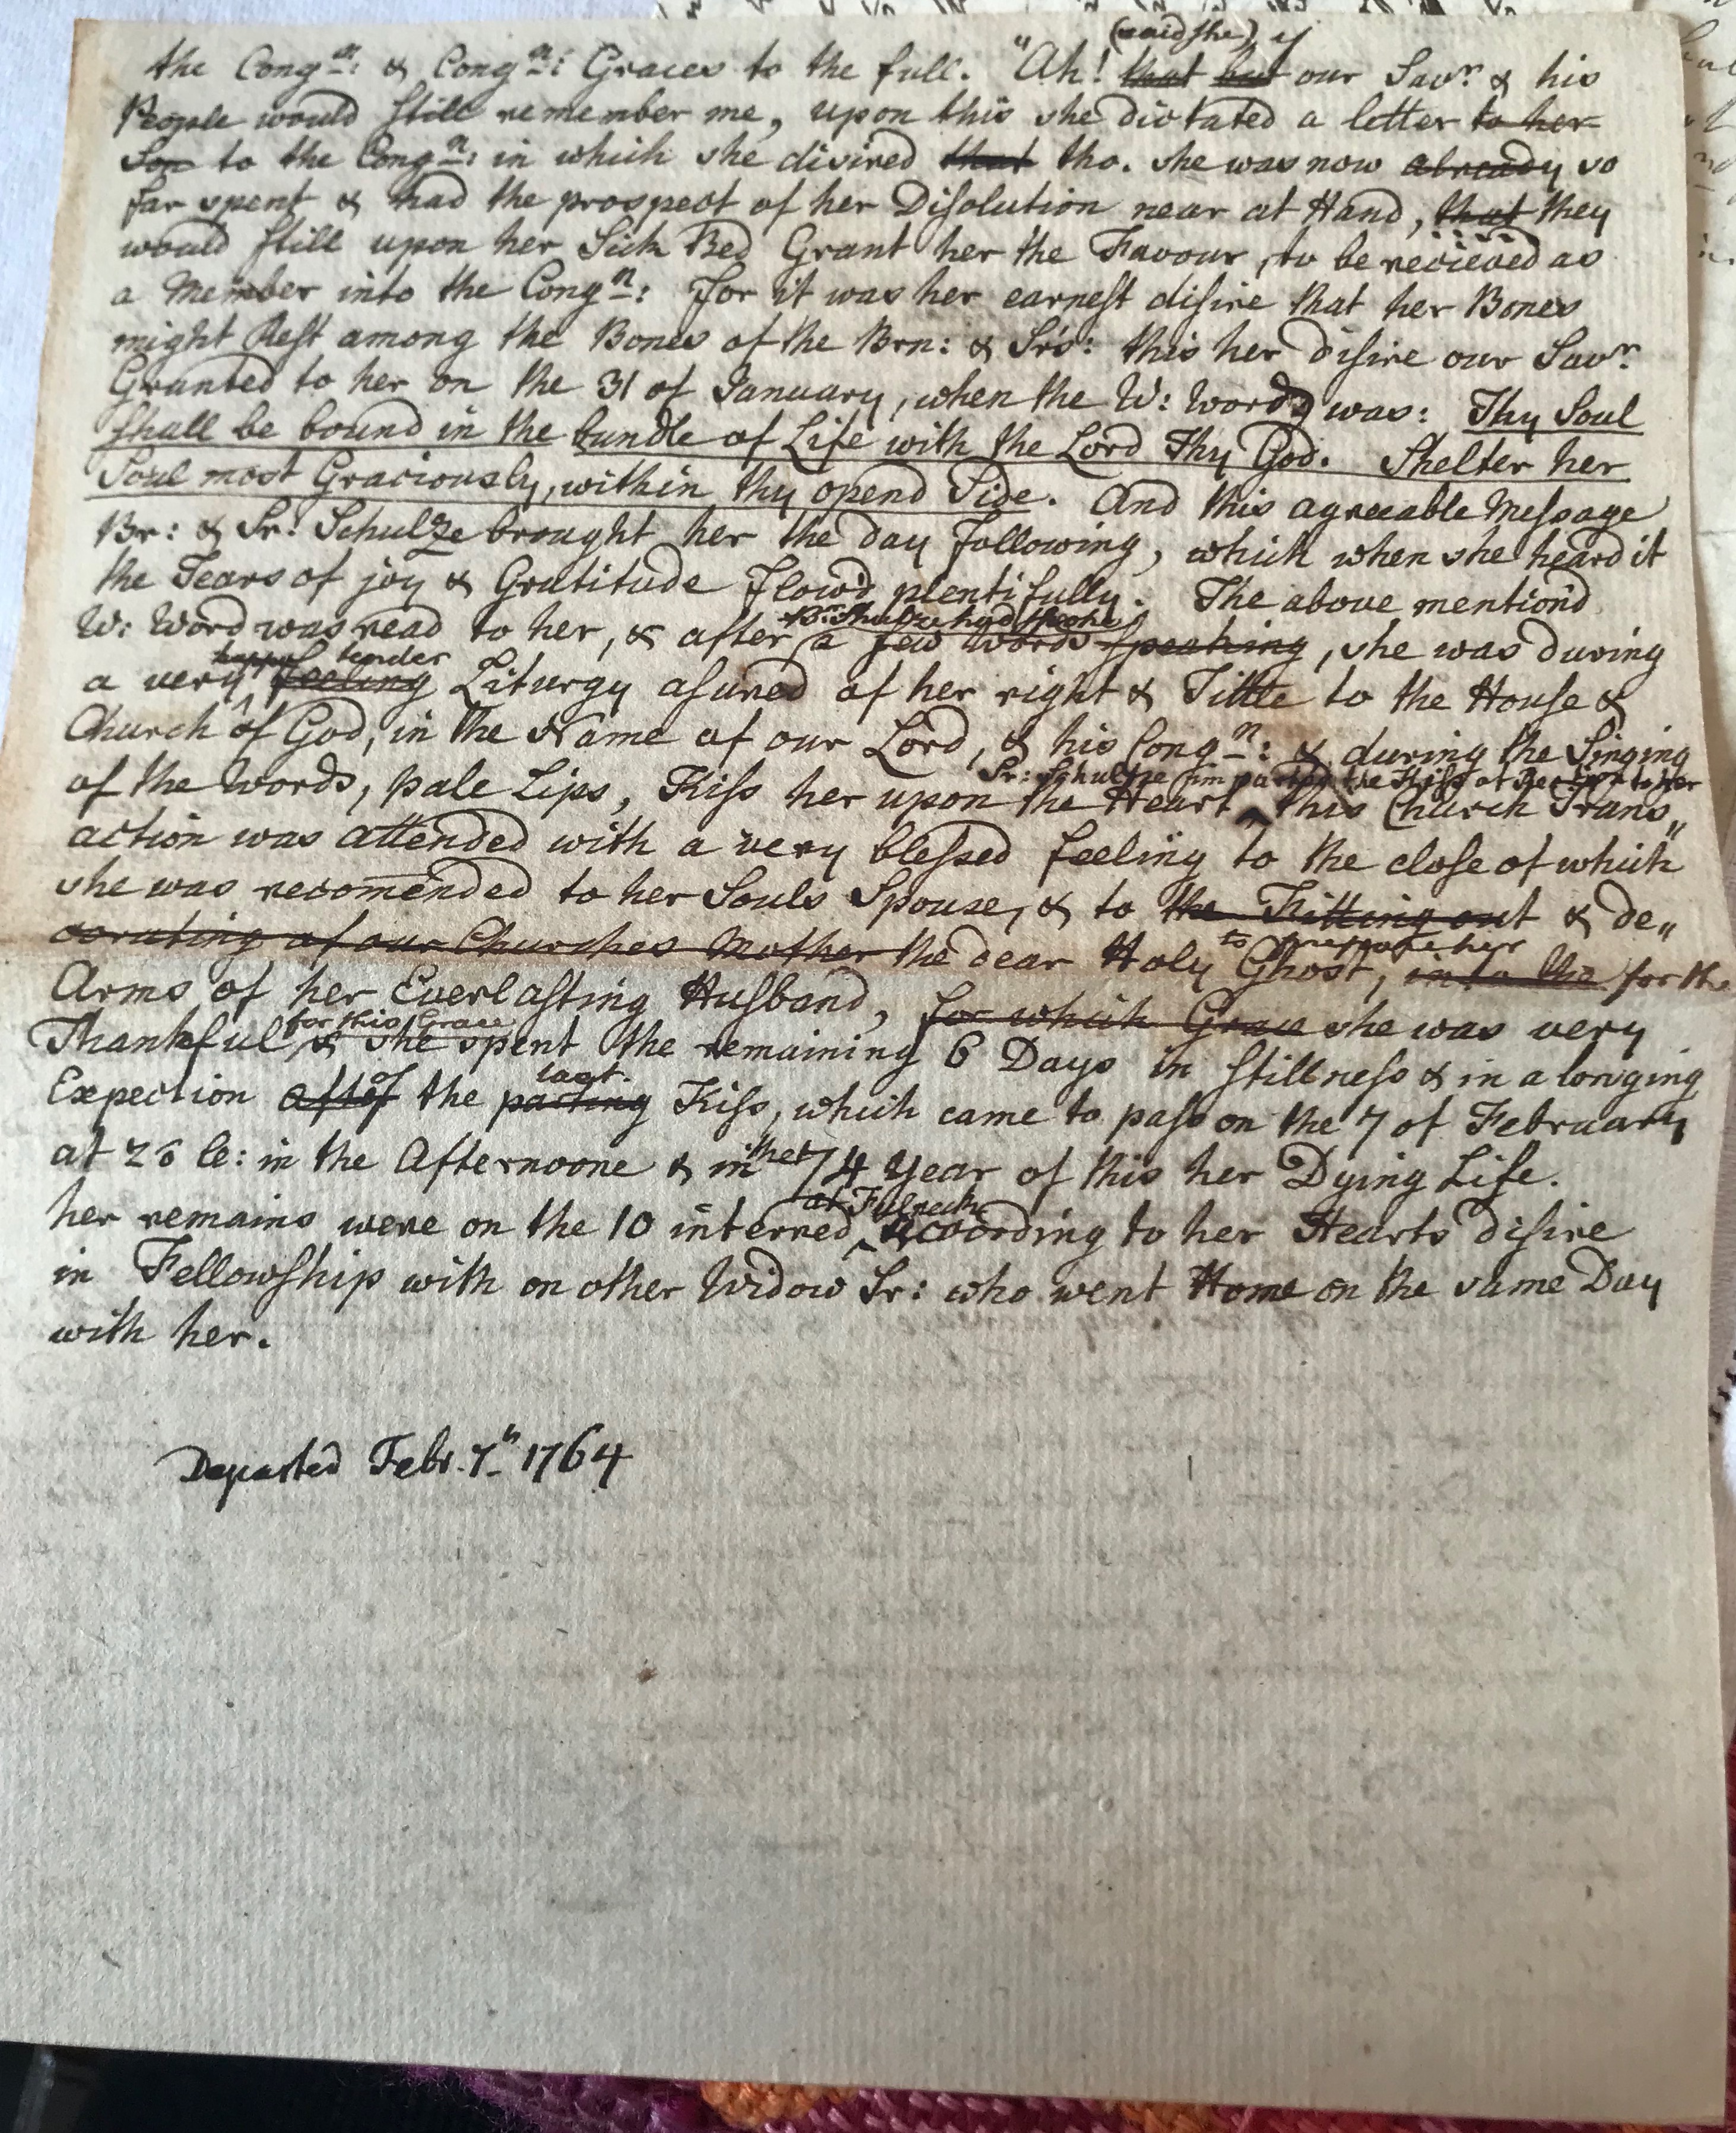 (said she) if
the Congn: & Congn: Graces to the full. "Ah! that but our Savr. & his
People would still remember me, upon this she dictated a letter to her
Son to the Congn: in which she disired that tho. she was now already so
far spent & had the prospect of her Disolution near at Hand, that they
would still upon her Sick Bed Grant her the Favour, to be recieved as
a Member into the Congn: For it was her earnest disire that her Bones
might Rest among the Bones of the Brn: & Srs: this her disire our Savr.
Granted to her on the 31 of January, when the W: Word was: Thy Soul
shall be bound in the bundle of Life with the Lord Thy God. Shelter her
Soul most Graciously, within thy opend Side. And this agreeable Message
Br: & Sr: Schulze brought her the day following, which when she heard it
the Tears of joy & Gratitude Flow'd plentifully. The above mention'd
Br. Shulze had spoke
W: Word was read to her, & after a few words speaking, she was during
happy tender
a very feeling Liturgy asured of her right & Tittle to the House &
Church of God, in the Name of our Lord, & his Congn: & during the Singing
Sr: Schultze imparted the Kiss of to her
of the words, pale Lips, Kiss her upon the Heart this Church Trans„
action was attended with a very blessed feeling to the close of which
she was recomended to her Souls Spouse, & to the Fitting out & de„
corating of our Churches Mother the dear Holy Ghost, into the for the
to preppare her
Arms of her Everlasting Husband, for which Grace she was very
for this Grace
Thankful & she spent the remaining 6 Days in stillness & in a longing
of last.
Expection after the parting Kiss, which came to pass on the 7 of February
at 26 in the Afternoone & in the 74 Year of this her Dying Life.
at Fulneck
her remains were on the 10 interred according to her Hearts disire
in Fellowship with on other Widow Sr: who went Home on the same Day
with her.
Departed Febr. 7th 1764